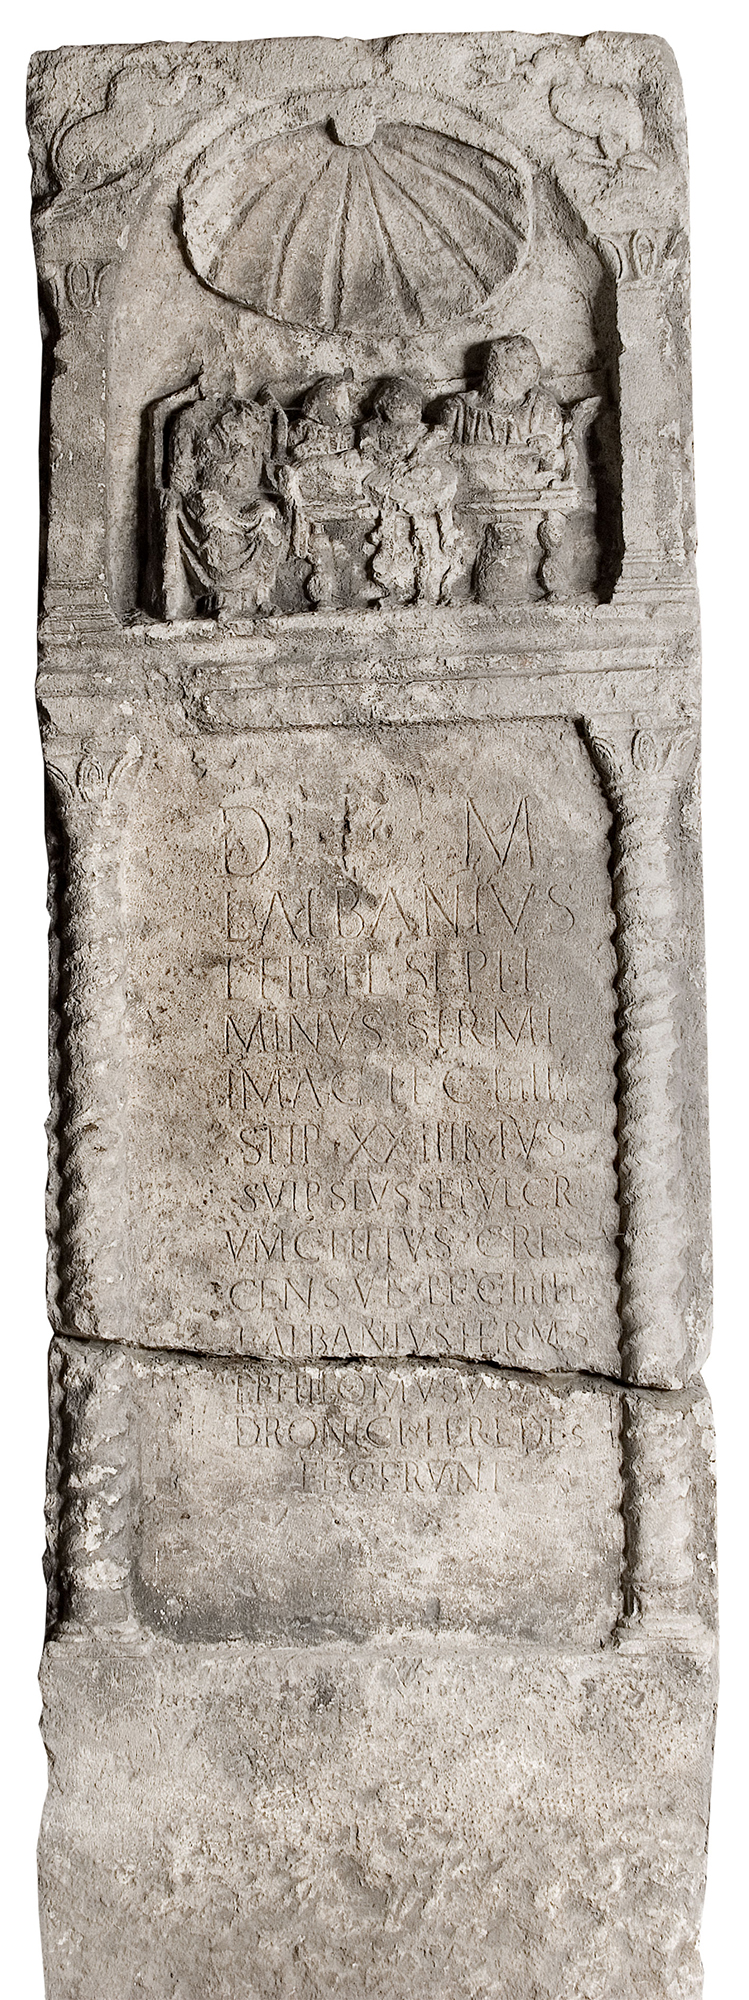 D M
L ALBANIVS
L FIL FL SEPTI
MINVS SIRMI
IMAG LEG IIIIFF
STIP XXIIII IVS
SVIPSIVS SEPVLCR
VM
CENS VET LEG IIIIFF
L ALBANIVS HERMES
EPHILOMVSVS
DRONICI HEREDES
FECERVNT